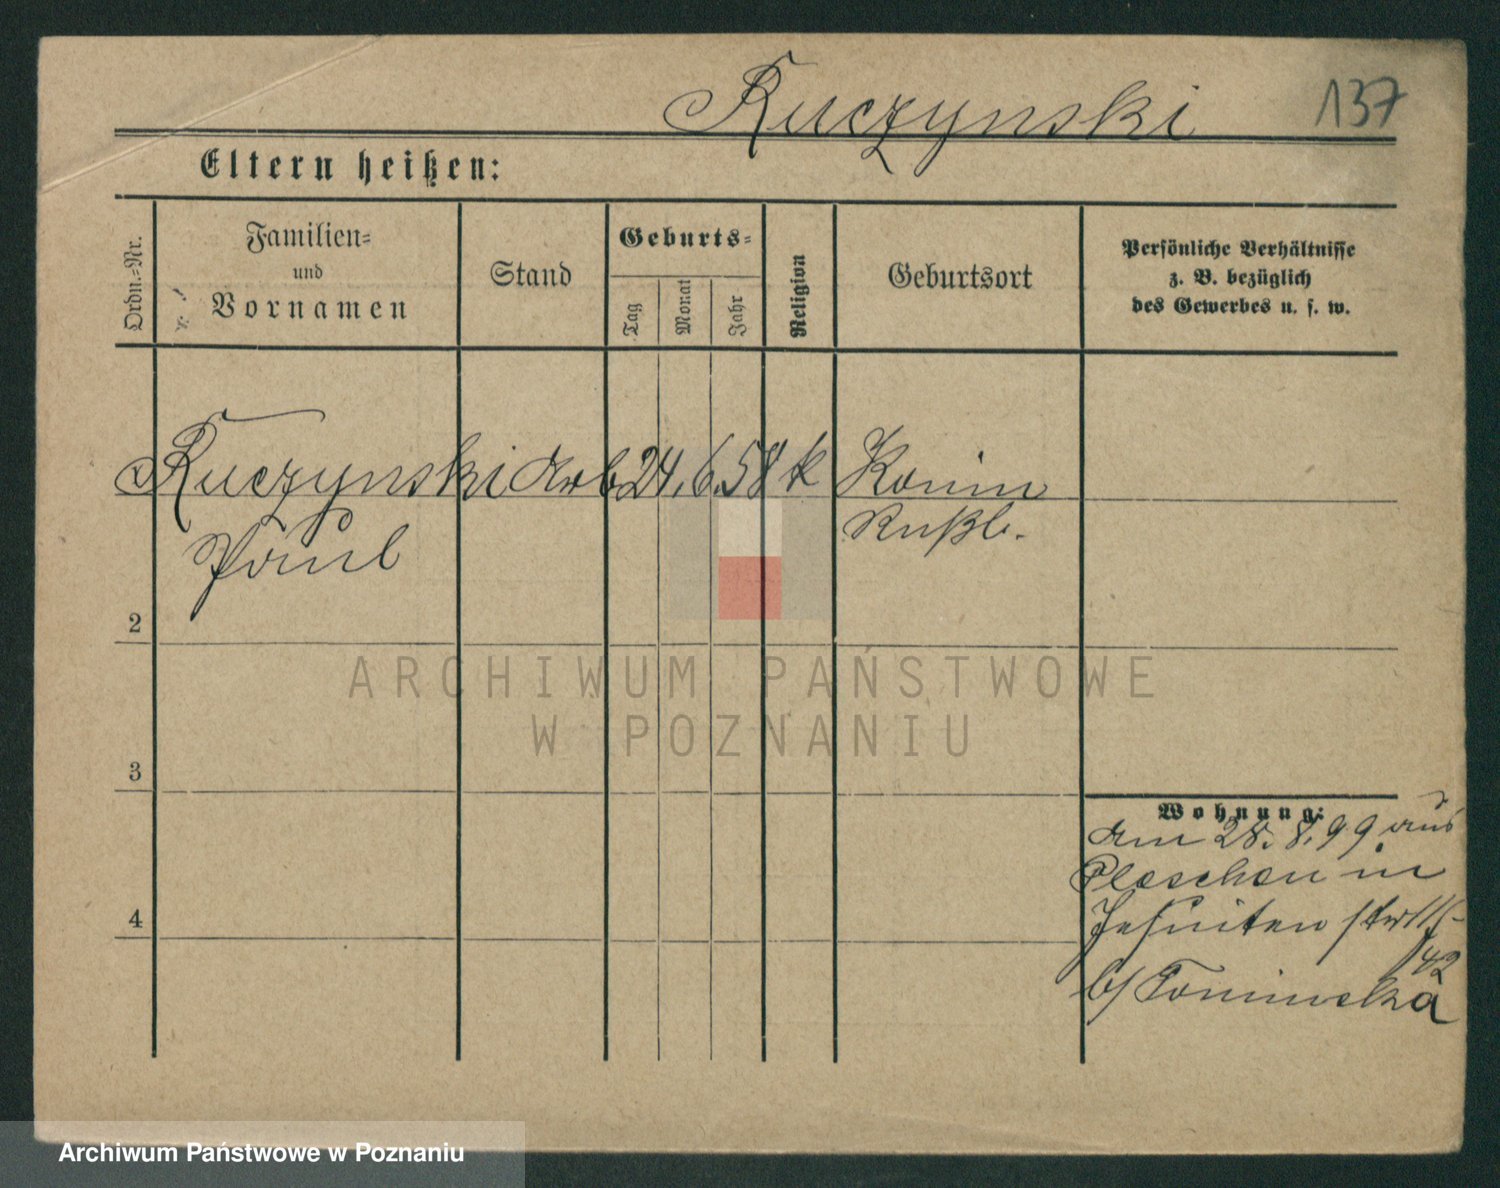 Kuczynski
137
Eltern heißen:
Ordn.-Nr.
Familien-
und
Vornamen
Stand
Geburts-
Tag
Monat
Jahr
Religion
Geburtsort
Persönliche Verhältnisse
z. B. bezüglich
des Gewerbes u. s. w.
Kuczynski Arb 24. 6. 58 k Konin
Paul Rußl.
2
3
4
Wohnung:
am 28. 8. 99 aus
Pleschen in
Jesuiten str
42
b/
ARCHIWUM PAŃSTWOWE
W POZNANIU
Archiwum Państwowe w Poznaniu